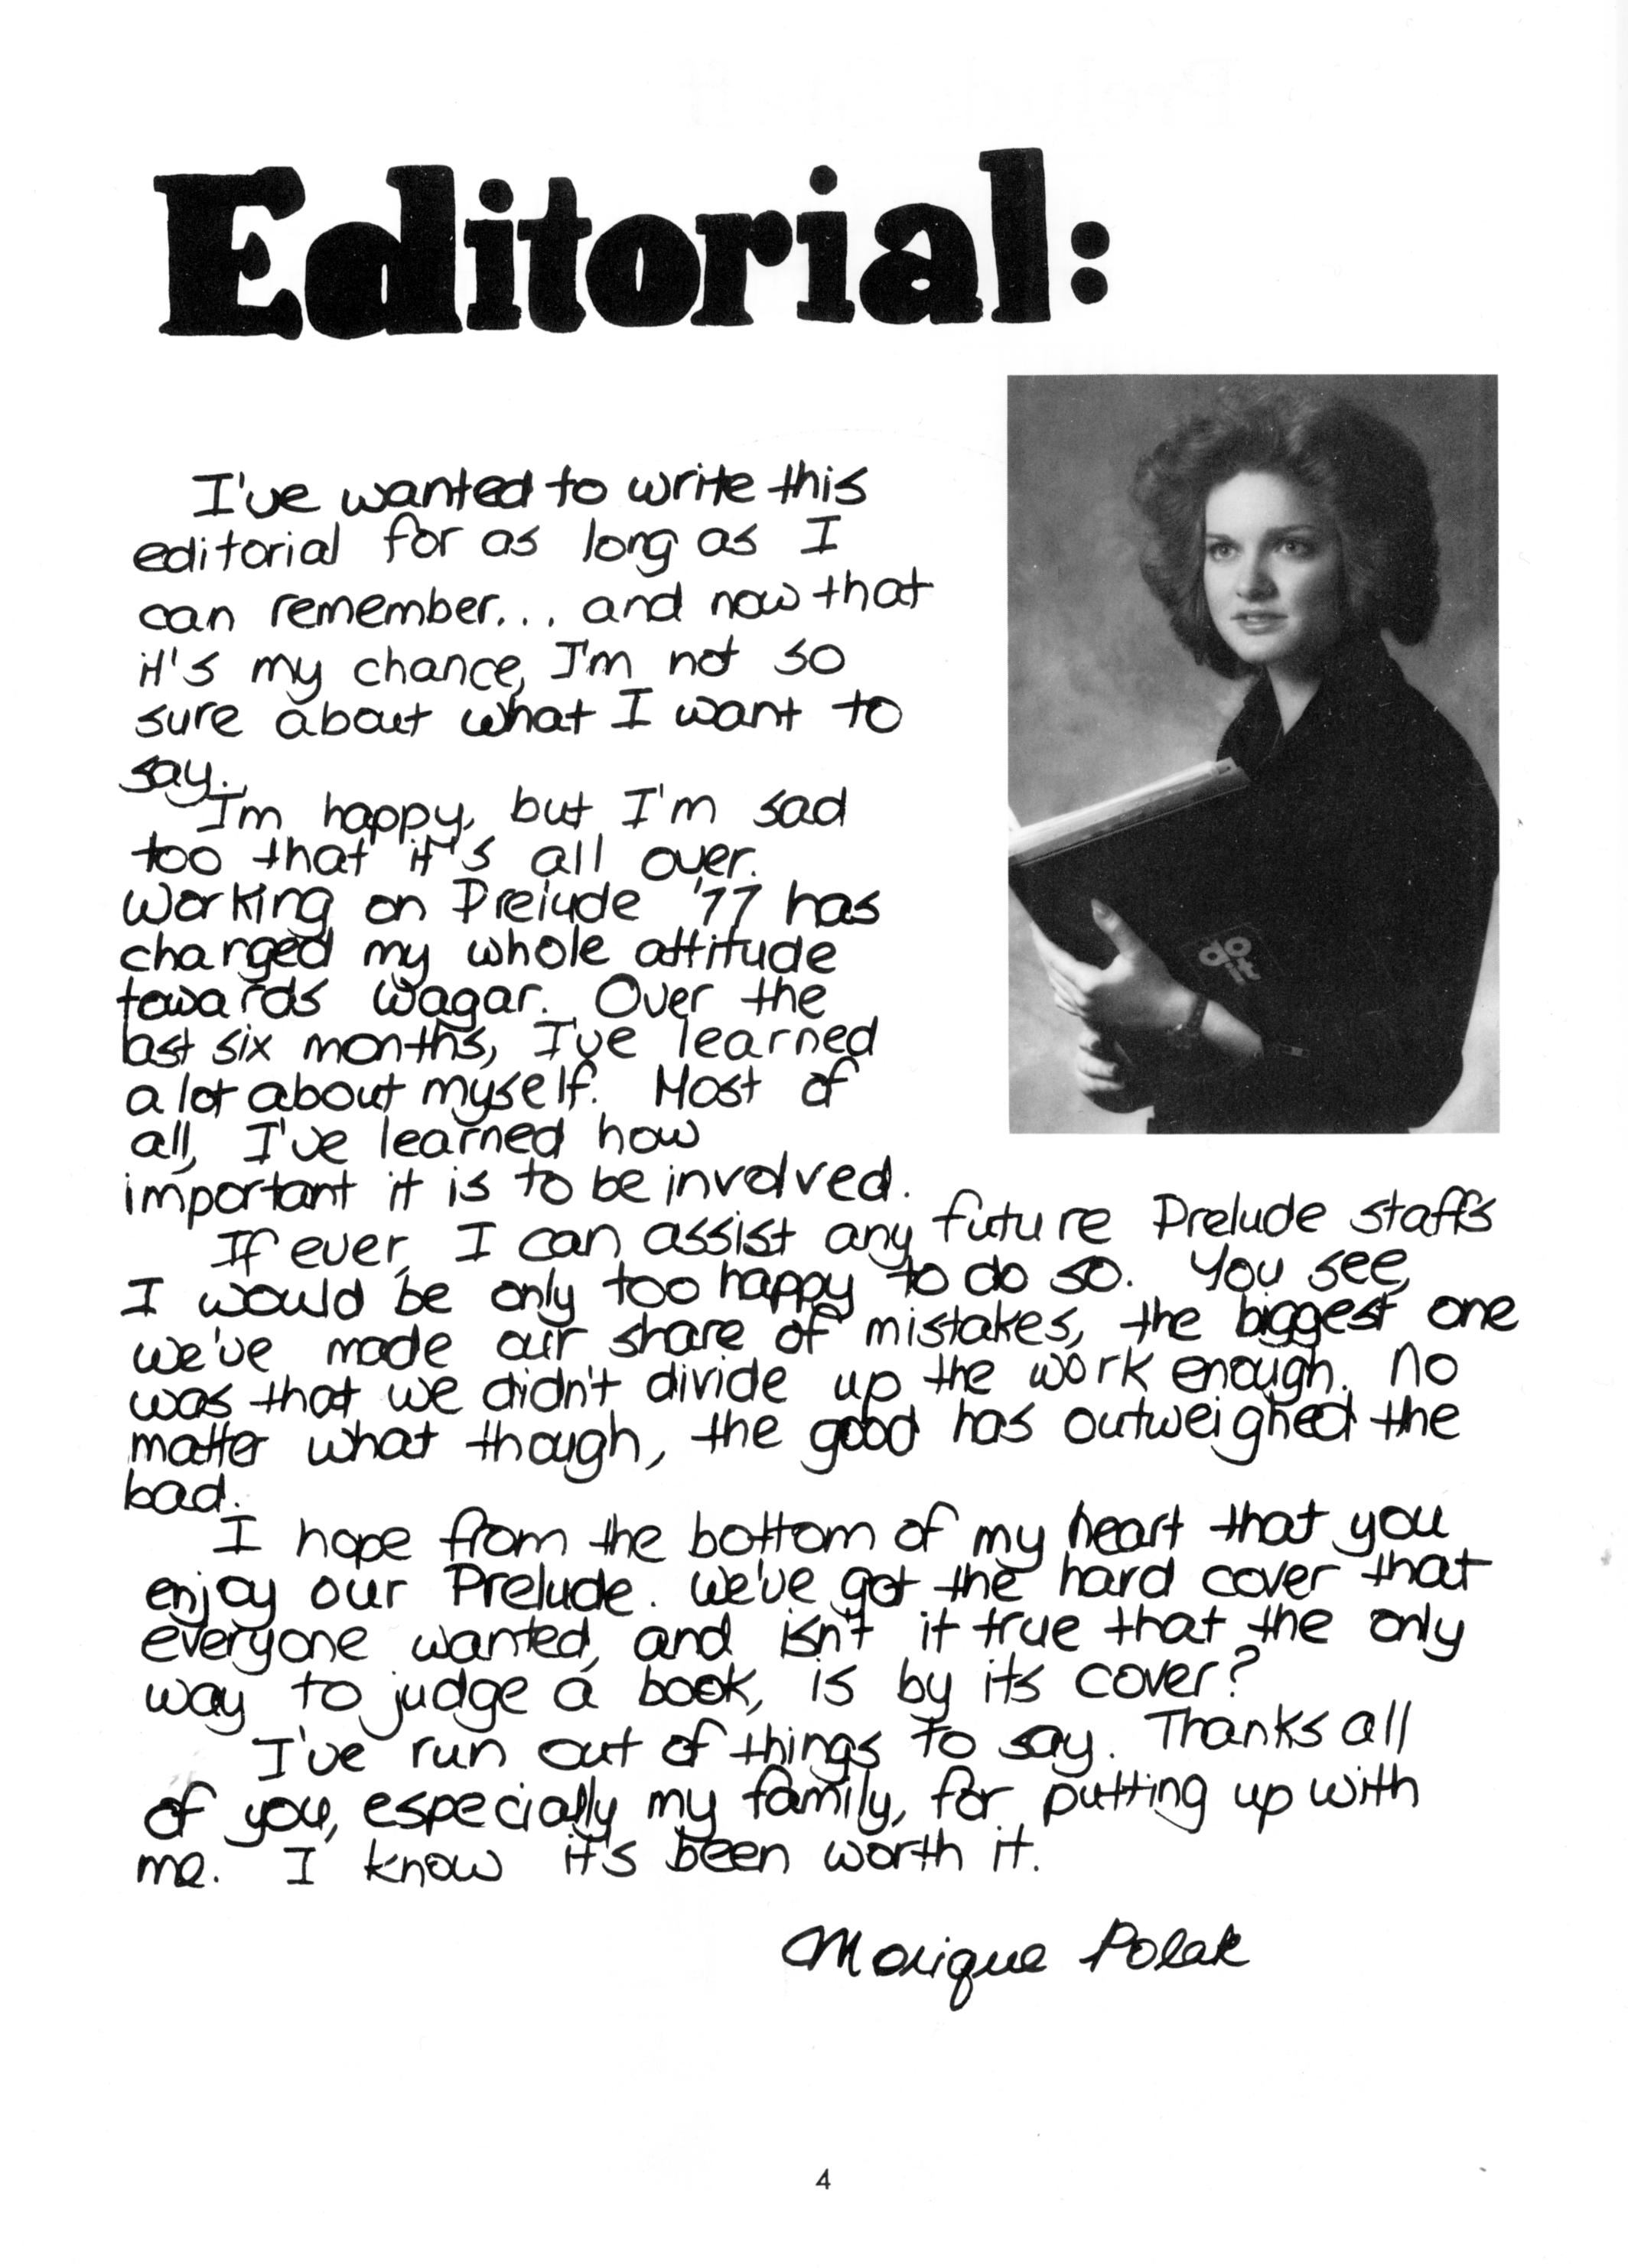 Editorial:
I've wanted to write this
editorial for as long as I
can remember... and now that
it's my chance, I'm not so
sure about what I want to
say.
I'm happy, but I'm sad
too that it's all over.
Working on Prelude '77 has
changed my whole attitude
towards Wagar. Over the
last six months, I've learned
a lot about myself. Most of
all, I've learned how
important it is to be involved.
If ever, I can assist any future Prelude staffs
I would be only too happy to do so. You see,
we've made our share of mistakes, the biggest one
was that we didn't divide up the work enough. No
matter what though, the good has outweighed the
bad.
I hope from the bottom of my heart that you
enjoy our Prelude. We've got the hard cover that
everyone wanted, and isn't it true that the only
way to judge a book, is by its cover?
I've run out of things to say. Thanks all
of you, especially my family, for putting up with
me. I know it's been worth it.
Monique Polak
4